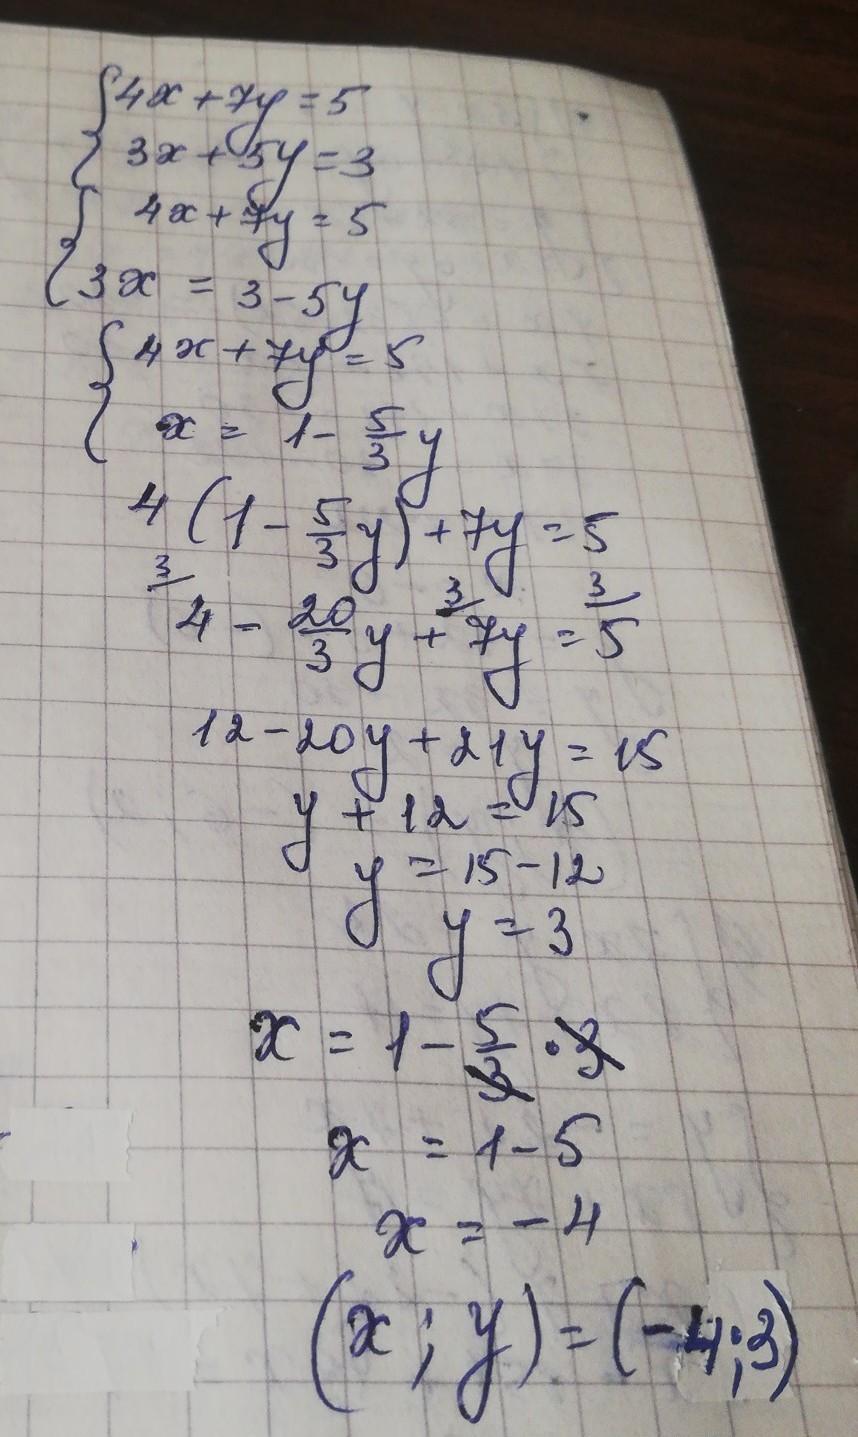 {4x + 7y = 5
3x + 5y = 3
{4x + 7y = 5
3x = 3 - 5y
{4x + 7y = 5
x = 1 - 5/3 y
4(1 - 5/3 y) + 7y = 5
3/ 3/ 3/
4 - 20/3 y + 7y = 5
12 - 20y + 21y = 15
y + 12 = 15
y = 15 - 12
y = 3
x = 1 - 5/3 · 3
x = 1 - 5
x = -4
(x; y) = (-4; 3)